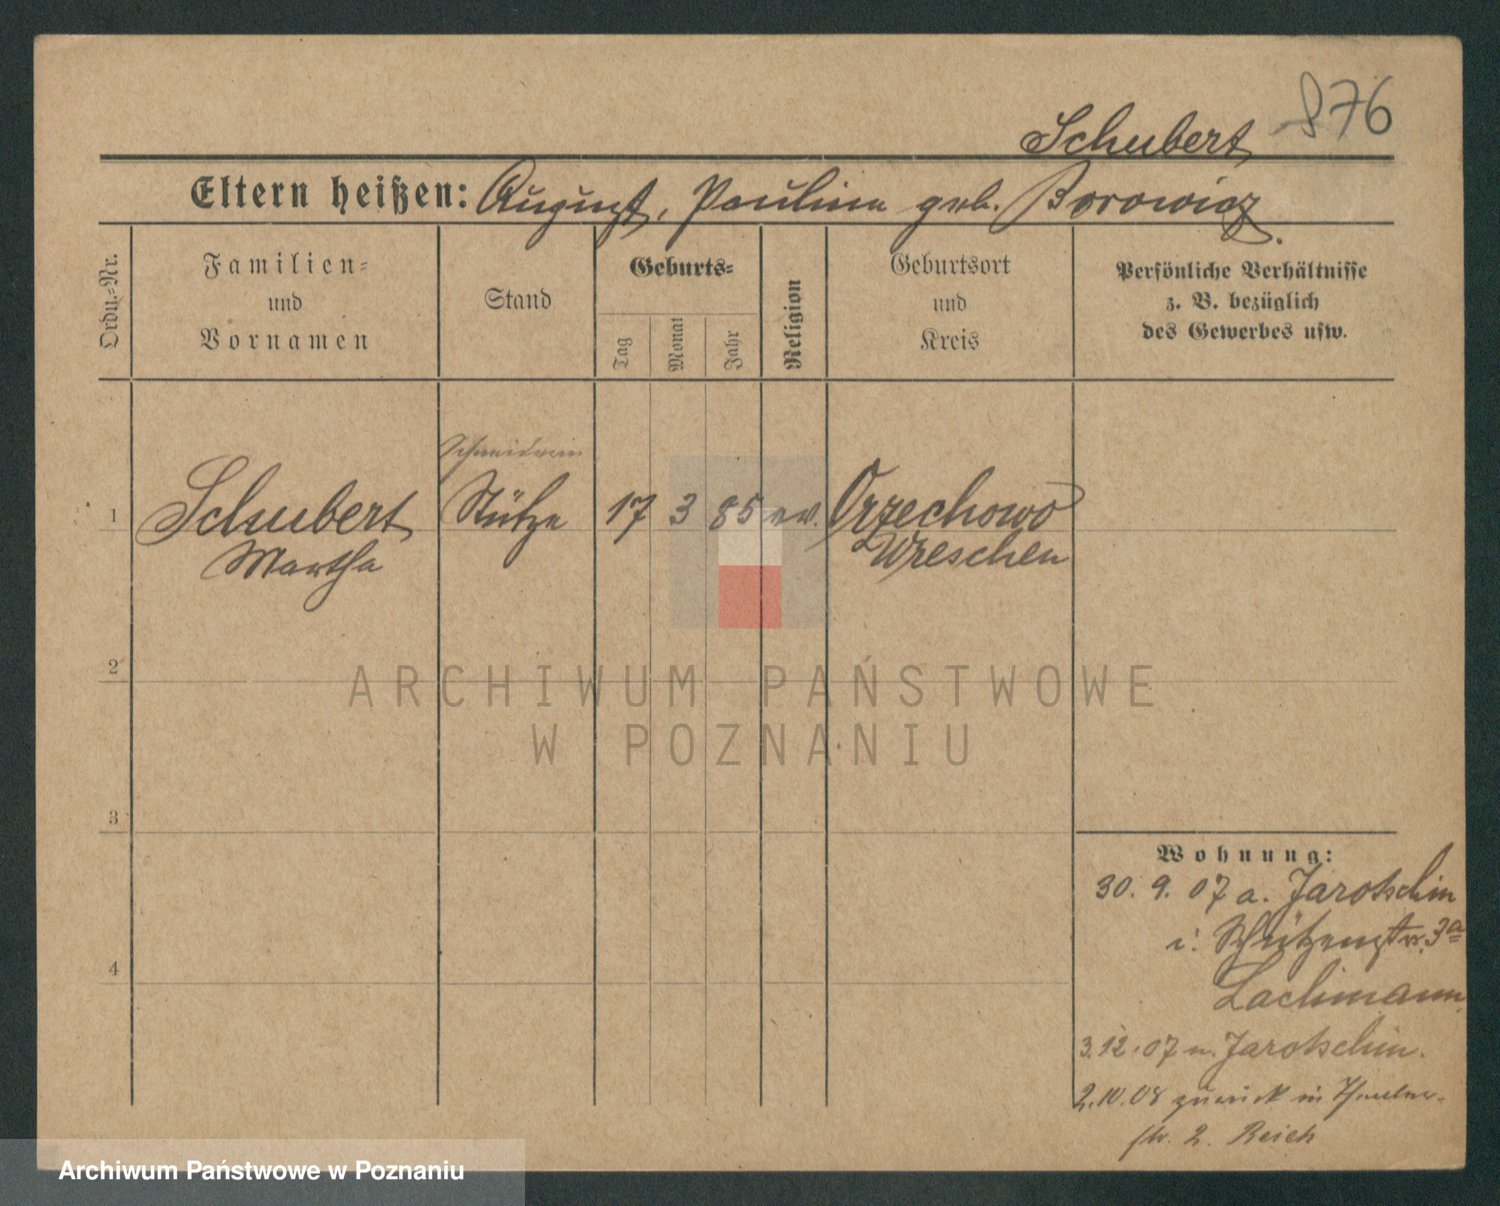 876
Schubert
Eltern heißen: August, Pauline geb. Borowicz.
Ordn.-Nr.
Familien-
und
Vornamen
Stand
Geburts-
Tag
Monat
Jahr
Religion
Geburtsort
und
Kreis
Persönliche Verhältnisse
z. B. bezüglich
des Gewerbes usw.
Schneiderin
1 Schubert Stütze 17 3 85 ev. Orzechowo
Martha Wreschen
2
ARCHIWUM PAŃSTWOWE
W POZNANIU
3
Wohnung:
30. 9. 07 a. Jarotschin
i. Schützenstr. 3a
Lachmann
4
3.12.07 n. Jarotschin.
2.10.08 zurück in
str. 2. Reich
Archiwum Państwowe w Poznaniu